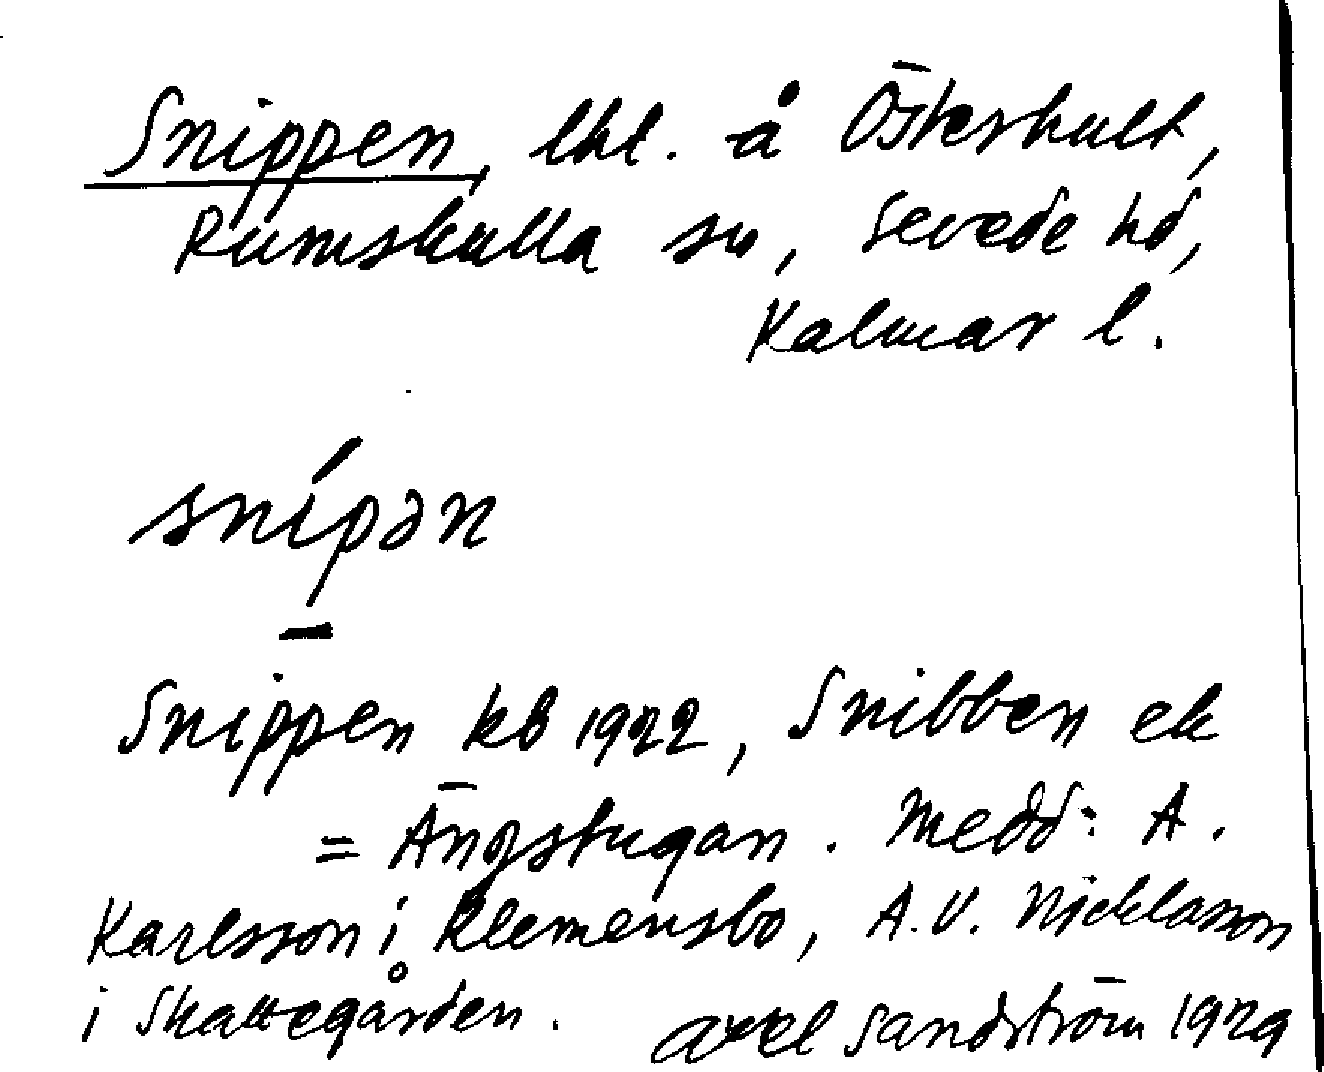 Snippen, lht. å Österhult,
Rumskulla sn, Sevede hd,
Kalmar l.
snípən
Snippen kb 1922, Snibben ek
= Ängstugan. Medd: A.
Karlsson i Klemensbo, A.V. Nicklasson
i Skattegården. Axel Sandström 1929